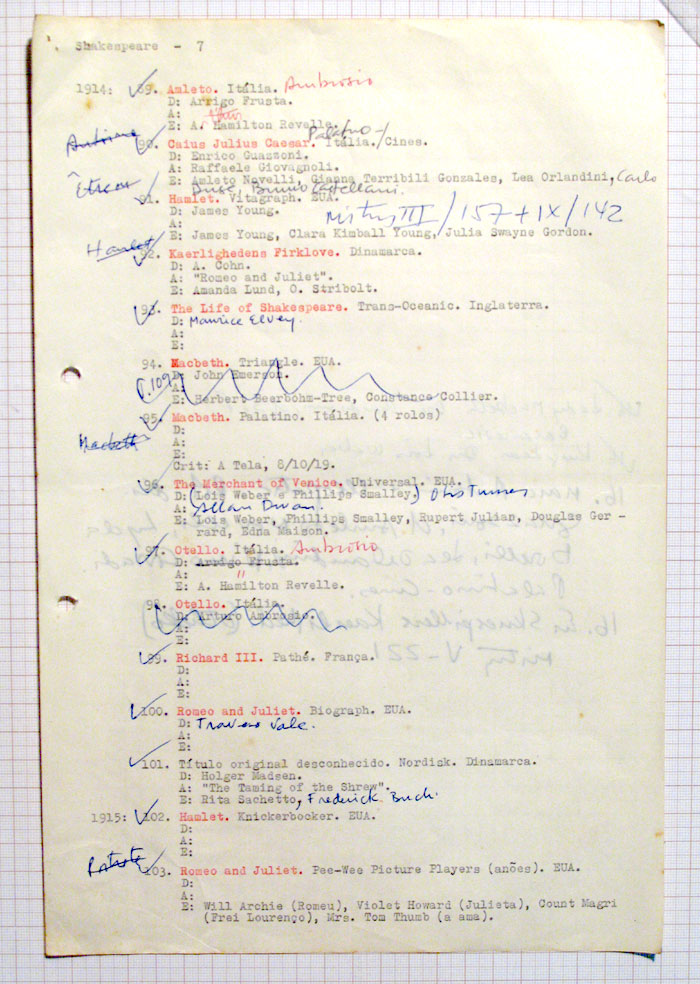 Shakespeare - 7
1914: 89. Amleto. Itália. Ambrosio
D: Arrigo Frusta.
A:
E: A. Hamilton Revelle.
Palatino-
90. Caius Julius Caesar. Itália./Cines.
D: Enrico Guazzoni.
A: Raffaele Giovagnoli.
E: Amleto Novelli, Gianna Terribili Gonzales, Lea Orlandini, Carlo
Duse, Bruno Castellani.
91. Hamlet. Vitagraph. EUA.
D: James Young. Mitry III/157+IX/142
A:
E: James Young, Clara Kimball Young, Julia Swayne Gordon.
Hamlet
92. Kaerlighedens Firklove. Dinamarca.
D: A. Cohn.
A: "Romeo and Juliet".
E: Amanda Lund, O. Stribolt.
93. The Life of Shakespeare. Trans-Oceanic. Inglaterra.
D: Maurice Elvey.
A:
E:
94. Macbeth. Triangle. EUA.
D: John Emerson.
A:
E: Herbert Beerbohm-Tree, Constance Collier.
95. Macbeth. Palatino. Itália. (4 rolos)
D:
Macbeth
A:
E:
Crit: A Tela, 8/10/19.
96. The Merchant of Venice. Universal. EUA.
D: (Lois Weber e Phillips Smalley.)
A: Allan Dwan.
E: Lois Weber, Phillips Smalley, Rupert Julian, Douglas Ger -
rard, Edna Maison.
97. Otello. Itália. Ambrosio
D: Arrigo Frusta.
A: "
E: A. Hamilton Revelle.
98. Otello. Itália
D: Arturo Ambrosio.
A:
E:
99. Richard III. Pathé. França.
D:
A:
E:
100. Romeo and Juliet. Biograph. EUA.
D: Travers Vale.
A:
E:
101. Título original desconhecido. Nordisk. Dinamarca.
D: Holger Madsen.
A: "The Taming of the Shrew".
E: Rita Sachetto, Frederick Buch.
1915: 102. Hamlet. Knickerbocker. EUA.
D:
A:
E:
103. Romeo and Juliet. Pee-Wee Picture Players (anões). EUA.
D:
A:
E: Will Archie (Romeu), Violet Howard (Julieta), Count Magri
(Frei Lourenço), Mrs. Tom Thumb (a ama).